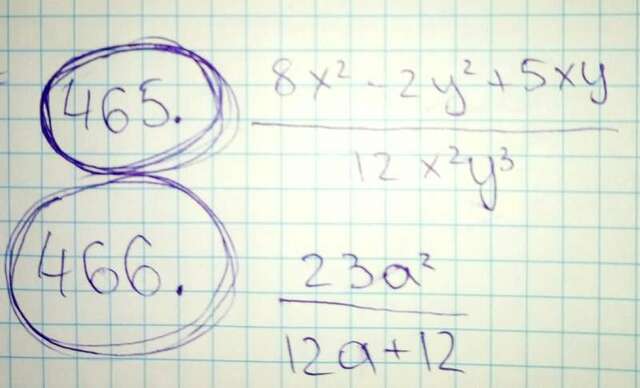 465. (8x² - 2y² + 5xy) / (12x²y³)
466. (23a²) / (12a+12)